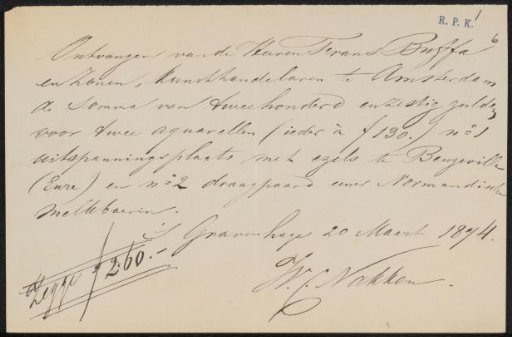 R. P. K. 1
6
Ontvangen van de Heeren Frans Buffa
en Zonen, kunsthandelaren te Amsterdam
de Somma van tweehonderd en zestig gulden
voor twee aquarellen (ieder à f 130.) nº 1
uitspanningsplaats met ezels te Beuzeville
(Eure) en nº 2 draagpaard eener Normandische
melkboerin.
's Gravenhage 20 Maart 1894.
Zegge f 260.-
W.C. Nakken.